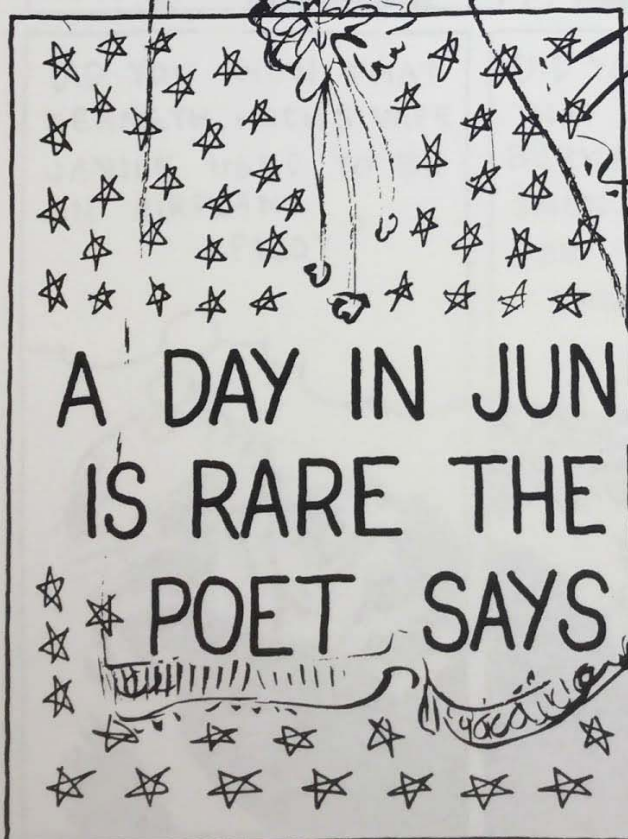 A DAY IN JUN
IS RARE THE
POET SAYS